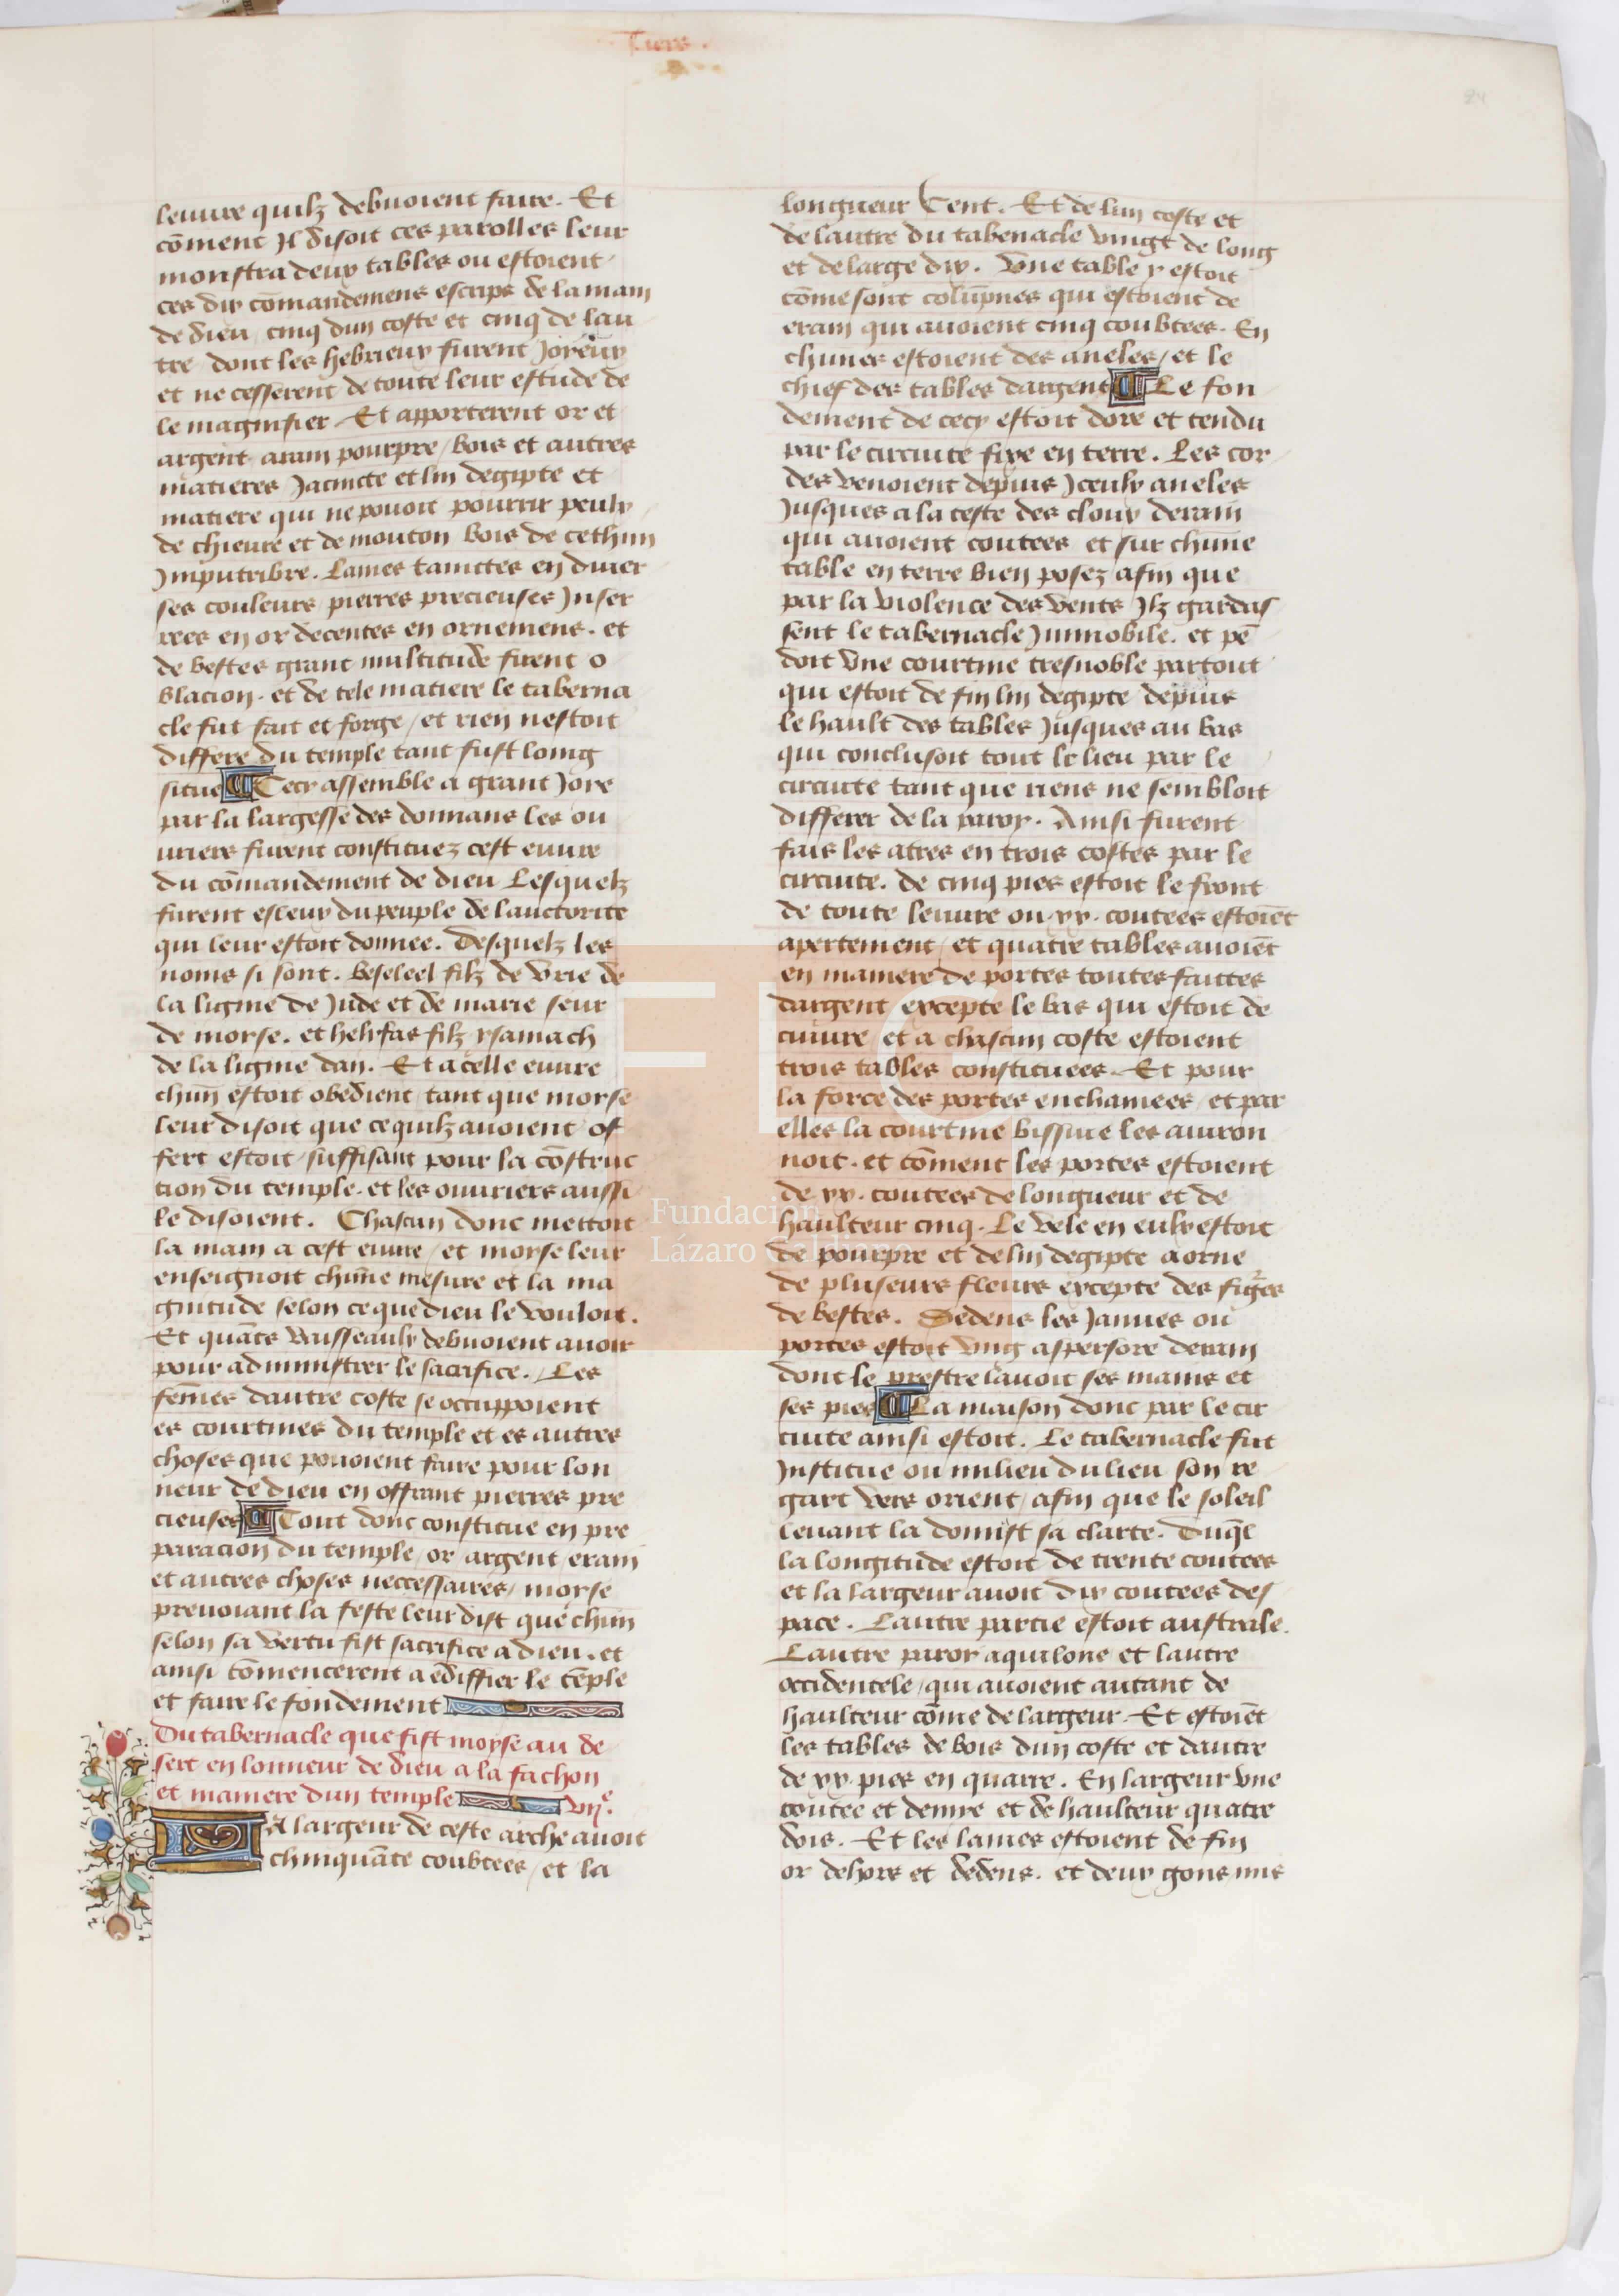 Tiers.
24
leuure quilz debuoient faire. Et
cōment Il disoit ces parolles leur
monstra deux tables ou estoient
ces dix cōmandemens escrips de la main
de dieu / cinq dun coste et cinq de lau
tre dont les hebrieux furent Joyeux
et ne cesserent de toute leur estude de
le magnifier Et apporterent or et
argent aram pourpre / bois et autres
matieres Jacincte et lin degipte et
matiere qui ne pouoit pourrir peulx
de chieure et de mouton bois de cethim
Imputrible. Laines tainctes en diuer
ses couleurs pierres precieuses Inser
rees en or decentes en ornemens. et
de bestes grant multitude firent o
blacion. et de tele matiere le taberna
cle fut fait et forge / et rien nestoit
differe du temple tant fust loing
situe ¶ Cecy assemble a grant Joye
par la largesse des donnans les ou
uriers furent constituez cest euure
du cōmandement de dieu Lesquelz
furent esleux du peuple de lauctorite
qui leur estoit donnee. Desquelz les
noms si sont. beseleel filz de vrie de
la lignie de Jude et de marie seur
de moyse. et helyfas filz ysamach
de la lignie dan. Et a celle euure
chun̄ estoit obedient / tant que moyse
leur disoit que ce quilz auoient of
fert estoit / suffisant pour la cōstruc
tion du temple. et les ouuriers aussi
le disoient. Chascun donc mettoit
la main a cest euure / et moyse leur
enseignoit chun̄e mesure et la ma
gnitude selon ce que dieu le vouloit.
Et quāts vaisseaulx debuoient auoir
pour administrer le sacrifice. Les
fem̄es dautre coste se occuppoient
es courtines du temple et es autres
choses que pouoient faire pour lon
neur de dieu en offrant pierres pre
cieuses ¶ Tout donc constitue en pre
paracion du temple / or argent / eram
et autres choses neccessaires / moyse
preuoiant la feste leur dist que chun
selon sa vertu fist sacrifice a dieu. et
ainsi cōmencerent a ediffier le tēple
et faire le fondement
Du tabernacle que fist moyse au de
sert en lonneur de dieu a la fachon
et maniere dun temple vijᵉ.
La largeur de ceste arche auoit
chinquāte coubtees / et la
longueur Cent. Et de lun coste et
de lautre du tabenacle vingt de long
et de large dix. Vne table y estoit
cōme sont colūpnes qui estoient de
eram qui auoient cinq coubtees. En
chunes estoient des aneles / et le
chief des tables dargent ¶ Le fon
dement de cecy estoit dore et tendu
par le circuite fixe en terre. Les cor
des venoient depuis Iceulx aneles
Jusques a la teste des cloux deram
qui auoient coutees et sur chune
table en terre bien posez afin que
par la violence des vents Ilz gardas
sent le tabernacle Immobile. et pē
doit vne courtine tresnoble partout
qui estoit de fin lin degipte depuis
le hault des tables Jusques au bas
qui conclusoit tout le lieu par le
circuite tant que riens ne sembloit
differer de la paroy. Ainsi furent
fais les atres en trois costes par le
circuite. de cinq pies estoit le front
de toute leuure ou .xx. coutees estoiēt
apertement / et quatre tables auoiēt
en maniere de portes toutes faittes
dargent excepte le bas qui estoit de
cuiure / et a chascun coste estoient
trois tables constituees. Et pour
la force des portes enchainees / et par
elles la courtine bissine les auiron
noit. et cōment les portes estoient
de xx. coutees de longueur et de
haulteur cinq. Le vele en eulx estoit
de pourpre et de lin degipte aorne
de pluseurs fleurs excepte des fig̃es
de bestes. Dedens les Januies ou
portes estoit vng aspersore deram
dont le prestre lauoit ses mains et
ses pies ¶ La maison donc par le cir
cuite ainsi estoit. Le tabernacle fut
Institue ou milieu du lieu son re
gart vers orient / afin que le soleil
leuant la donnst sa clarte. Duq̄l
la longitude estoit de trente coutees
et la largeur auoit dix coutees des
pace. Lautre partie estoit australe.
Lautre paroy aquilone et lautre
occidentele / qui auoient autant de
haulteur cōme de largeur. Et estoiēt
les tables de bois dun coste et dautre
de xx. pies en quarre. En largeur vne
coutee et demye et de haulteur quatre
dois. Et les lames estoient de fin
or dehors et dedens. et deux gons mis
Fundación
Lázaro Galdiano